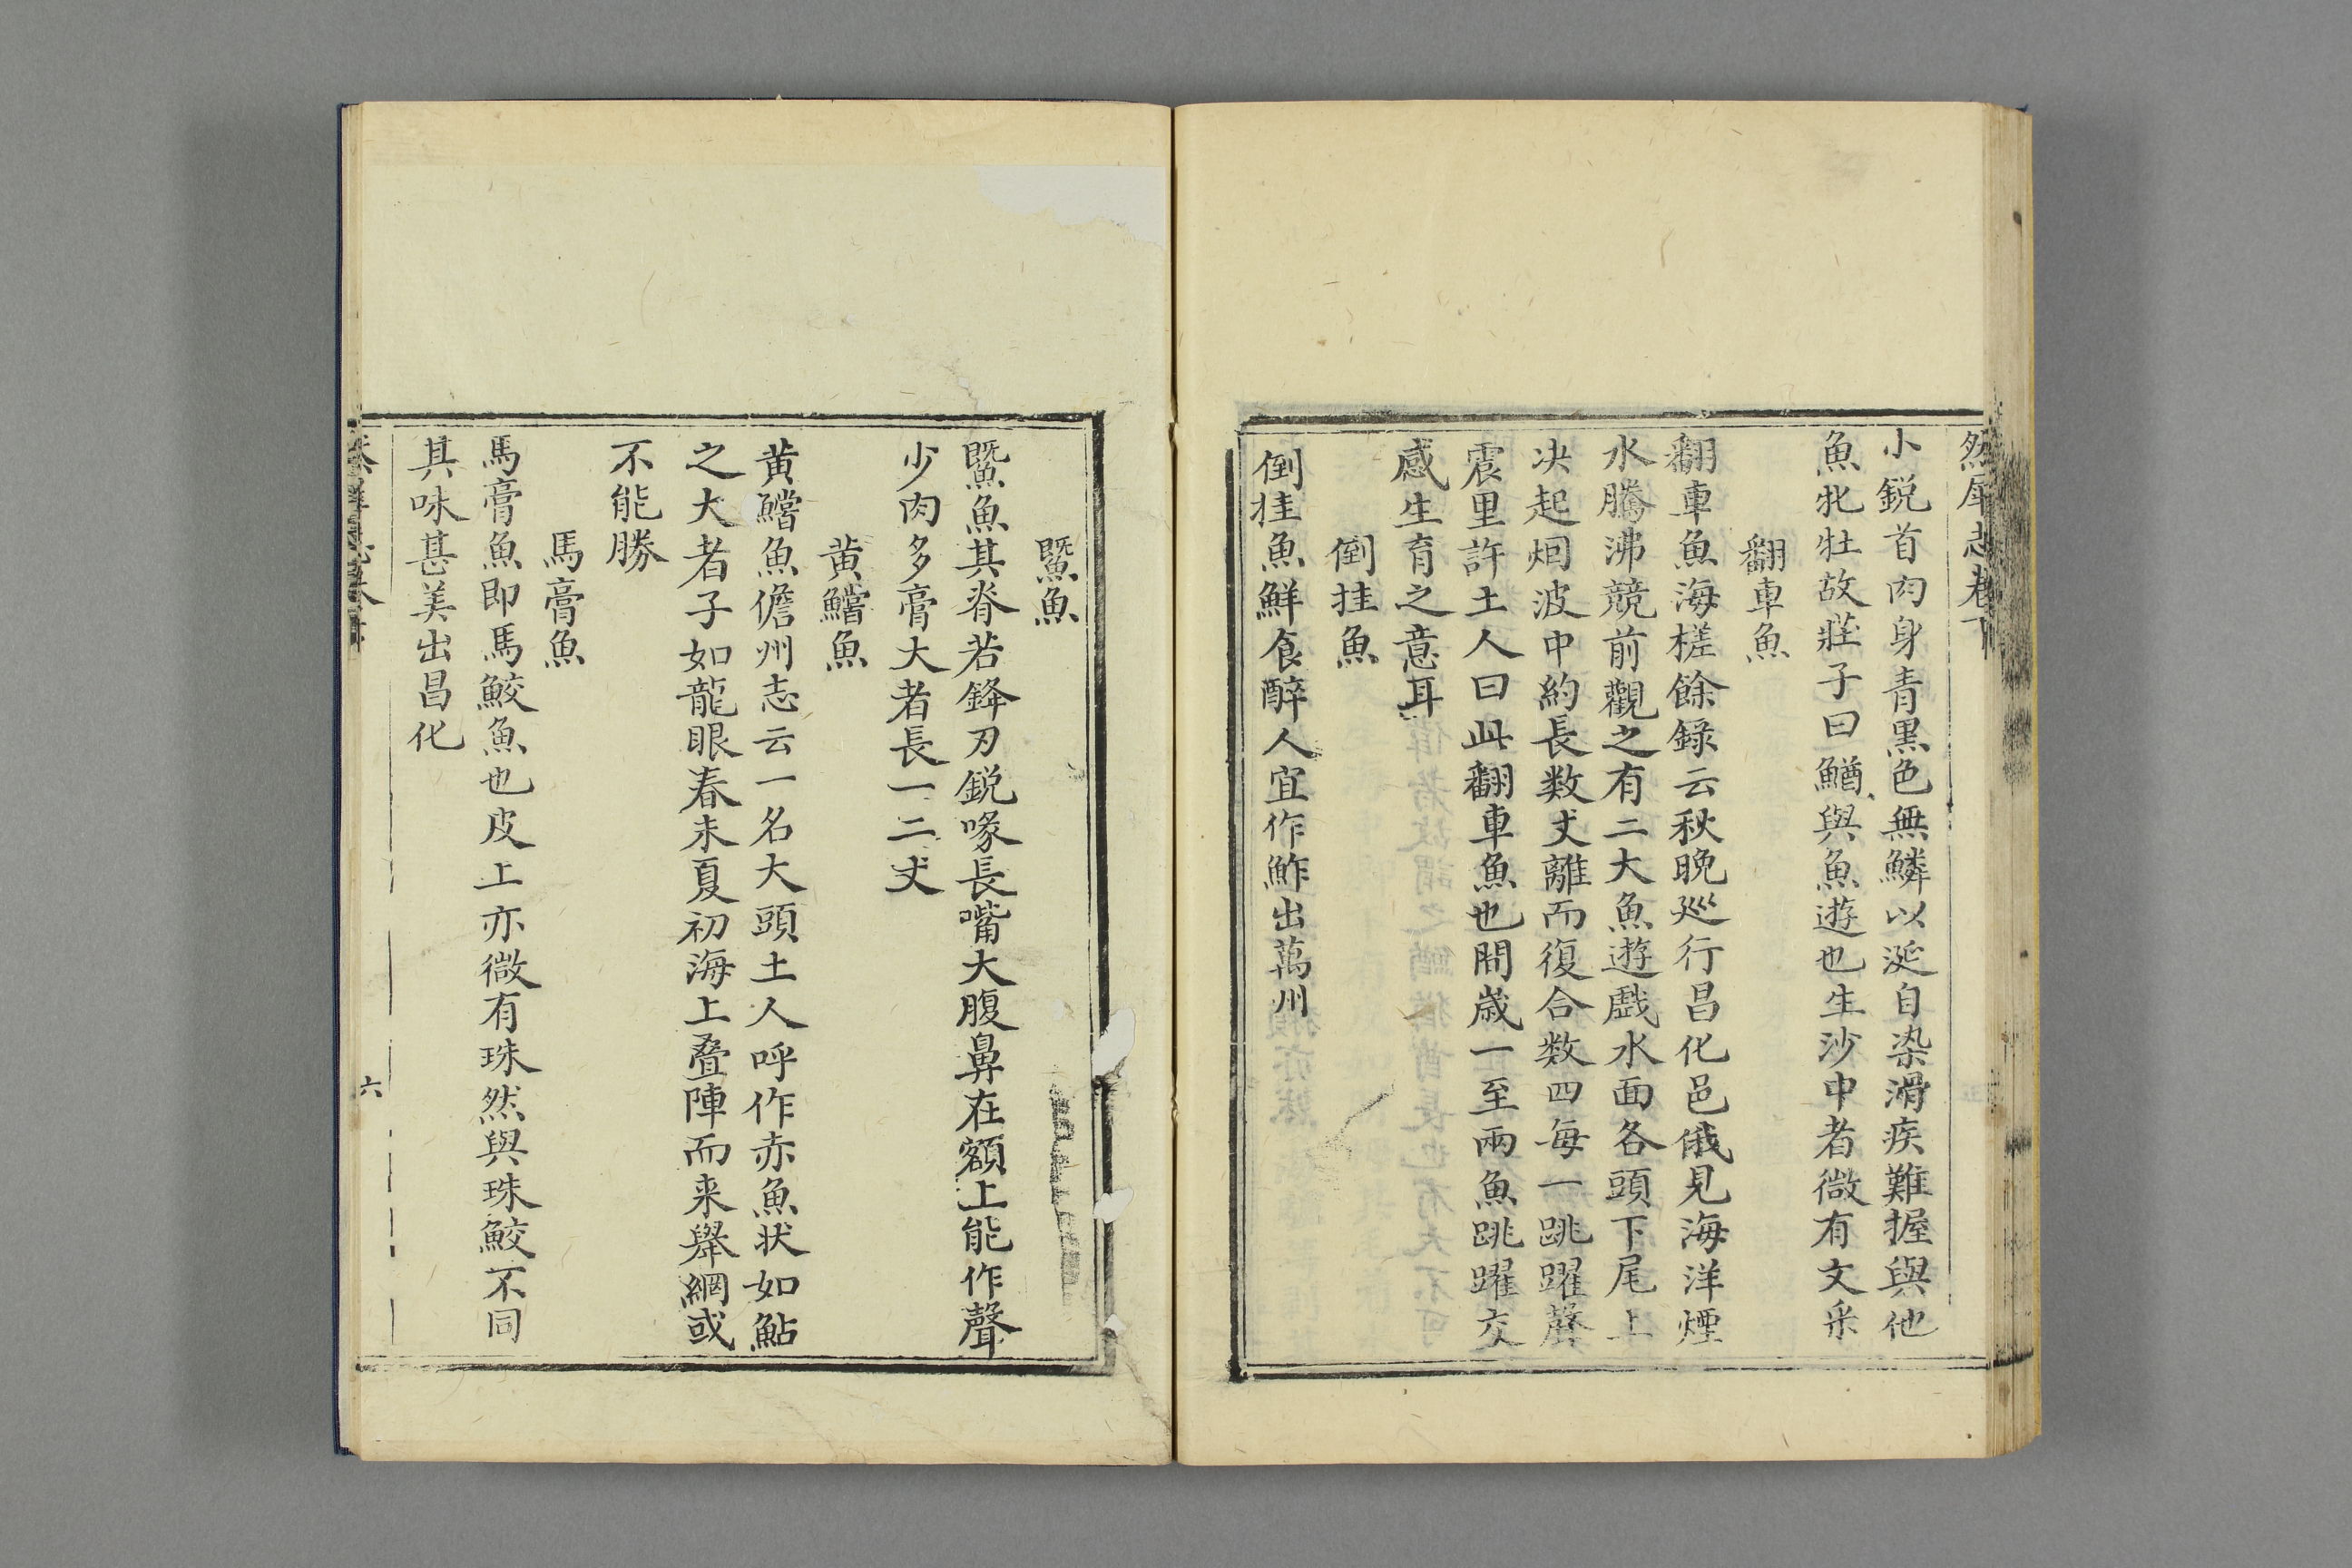 然犀志卷下
小鋭首肉身青黒色無鱗以涎自染滑疾難握與他
魚牝牡故莊子曰鰌與魚遊也生沙中者微有文采
翻車魚
翻車魚海槎餘錄云秋晚巡行昌化邑俄見海洋煙
水騰沸競前觀之有二大魚遊戲水面各頭下尾上
决起烟波中約長数丈離而復合数四每一跳躍聲
震里許土人曰此翻車魚也間歲一至兩魚跳躍交
感生育之意耳
倒挂魚
倒挂魚鮮食醉人宜作鮓出萬州
鱀魚
鱀魚其脊若鋒刃鋭喙長嘴大腹鼻在額上能作聲
少肉多膏大者長一二丈
黄鱨魚
黄鱨魚儋州志云一名大頭土人呼作赤魚状如鮎
之大者子如龍眼春末夏初海上疊陣而来舉網或
不能勝
馬膏魚
馬膏魚即馬鮫魚也皮上亦微有珠然與珠鮫不同
其味甚美出昌化
六